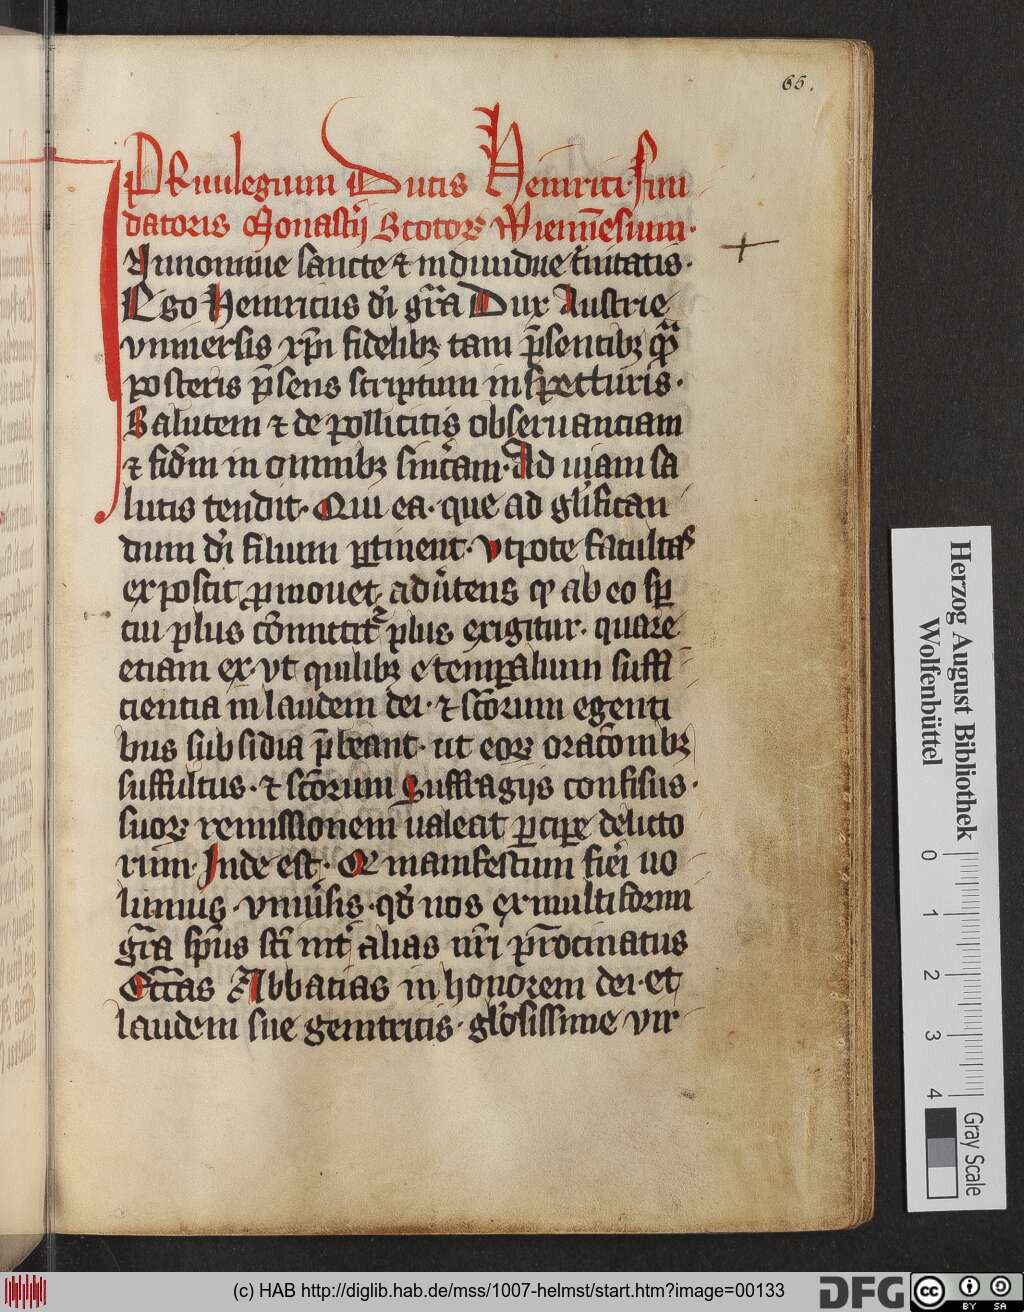 65.
PRiuilegium Ducis Heinrici fun
datoris Monastʳij Scotoꝝ Wienn̄esium·
Innomine sancte ⁊ indiuidue t͛nitatis·
Ego Heinricus dı̄ gr̄a Dux Austrie
vniuersis xp̄i fidelibꝫ tam p̄sentibꝫ qᷓ̄
posteris p̄sens scriptum inspecturis·
Salutem ⁊ de pollicitis obseruanciam
⁊ fid̄m in omnibꝫ sinc͛am· Ad uiam sa
lutis tendit· Qui ea· que ad gl̄ifican
dum dı̄ filium ꝑtinent· vtpote facultaˢ
exposcit ꝓmouet, adu͛tens ꝙ ab eo sꝑ
cui plus cōmittitᷣ plus exigitur· quare
etiam ex· vt quilibꝫ e temꝑalium suffi
cientia in laudem dei· ⁊ sc̄orum egenti
bus subsidia p̄beant· ut eoꝝ orac̄onibꝫ
suffultus· ⁊ sc̄orum Suffragijs confisus·
suoꝝ remissionem ualeat ꝑciꝑe delicto
rum· Inde est· Qᷓ manifestum fieri uo
lumus· vniu͛sis· qd̄ nos ex multiformi
gr̄a sp̄us sc̄i int͛ alias nr̄i pr̄ocinatus
Ecc̄as Abbacias in honorem dei· et
laudem sue genitricis· gl̄osissime vir
Herzog August Bibliothek
Wolfenbüttel
0 1 2 3 4
Gray Scale
(c) HAB http://diglib.hab.de/mss/1007-helmst/start.htm?image=00133
DFG
cc BY SA